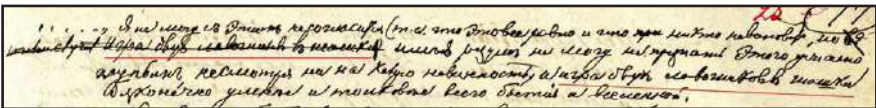 Я не могу съ этимъ не согласиться (т.е. что это все равно и что при никто невиноватъ, но
игра двухъ мавочниковъ въ шашки имѣя разумъ не могу не признать этого ужасно
глубокимъ несмотря ни на какую невинность, а игра двухъ лавочниковъ въ шашки
безконечно умнѣе и толковѣе всего бытія и вселенной.